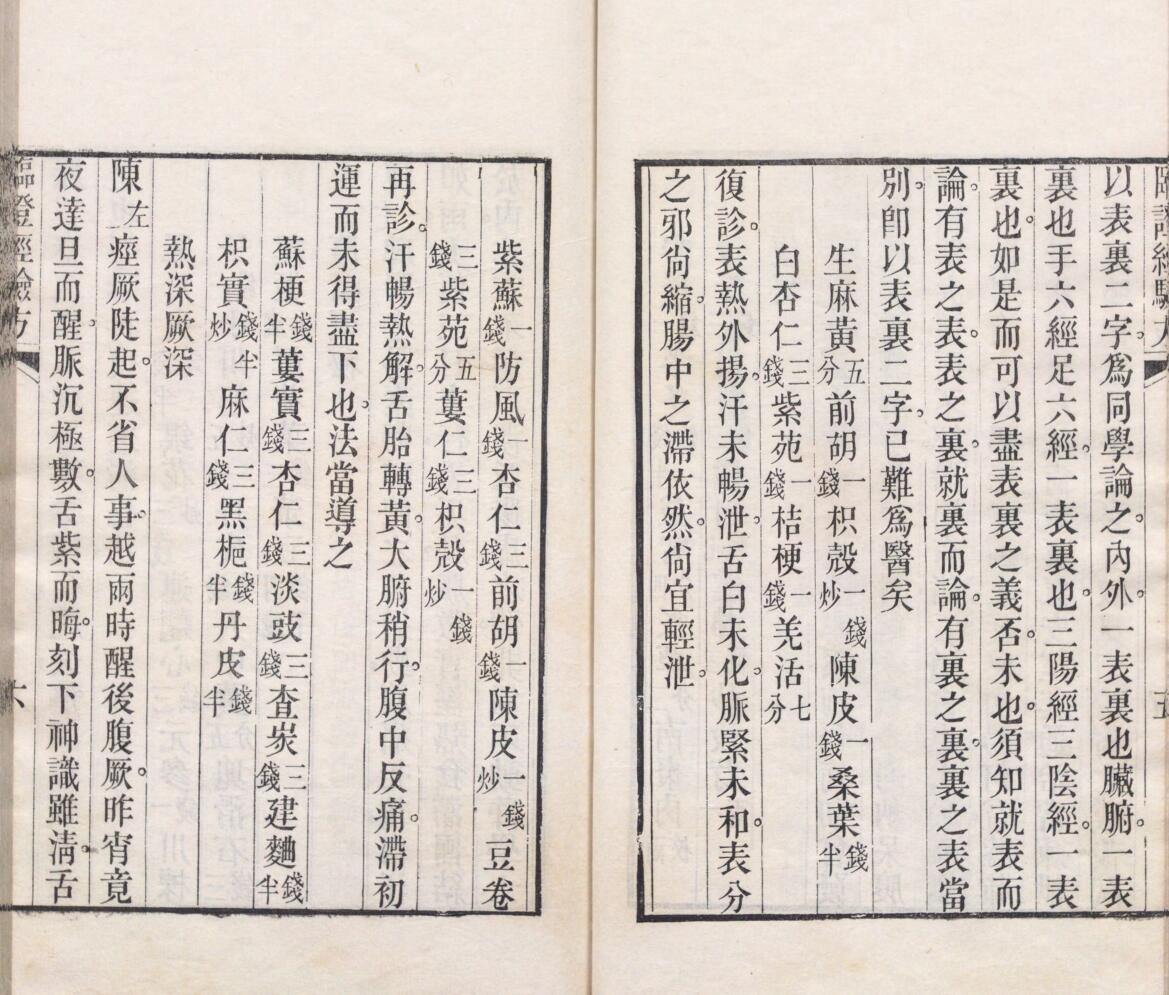 以表裏二字。爲同學論之。內外。一表裏也臟腑。一表
裏也手六經足六經。一表裏也。三陽經三陰經。一表
裏也。如是而可以盡表裏之義否。未也。須知就表而
論。有表之表。表之裏。就裏而論。有裏之裏。裏之表當
別。卽以表裏二字。已難爲醫矣
生麻黃五分前胡一錢枳殼一錢炒陳皮一錢桑葉錢半
白杏仁三錢紫苑一錢桔梗一錢羌活七分
復診。表熱外揚。汗未暢泄。舌白未化。脈緊未和。表分
之邪尙縮。腸中之滯依然。尙宜輕泄。
紫蘇一錢防風一錢杏仁三錢前胡一錢陳皮一錢炒豆卷
三錢紫苑五分蔞仁三錢枳殼一錢炒
再診。汗暢熱解。舌胎轉黃。大腑稍行。腹中反痛。滯初
運而未得盡下也。法當導之
蘇梗錢半蔞實三錢杏仁三錢淡豉三錢查炭三錢建麯錢半
枳實錢半炒麻仁三錢黑梔錢半丹皮錢半
熱深厥深
陳左痙厥陡起。不省人事。越兩時醒後腹厥。昨宵竟
夜達旦而醒。脈沉極數。舌紫而晦。刻下神識雖淸。舌
六